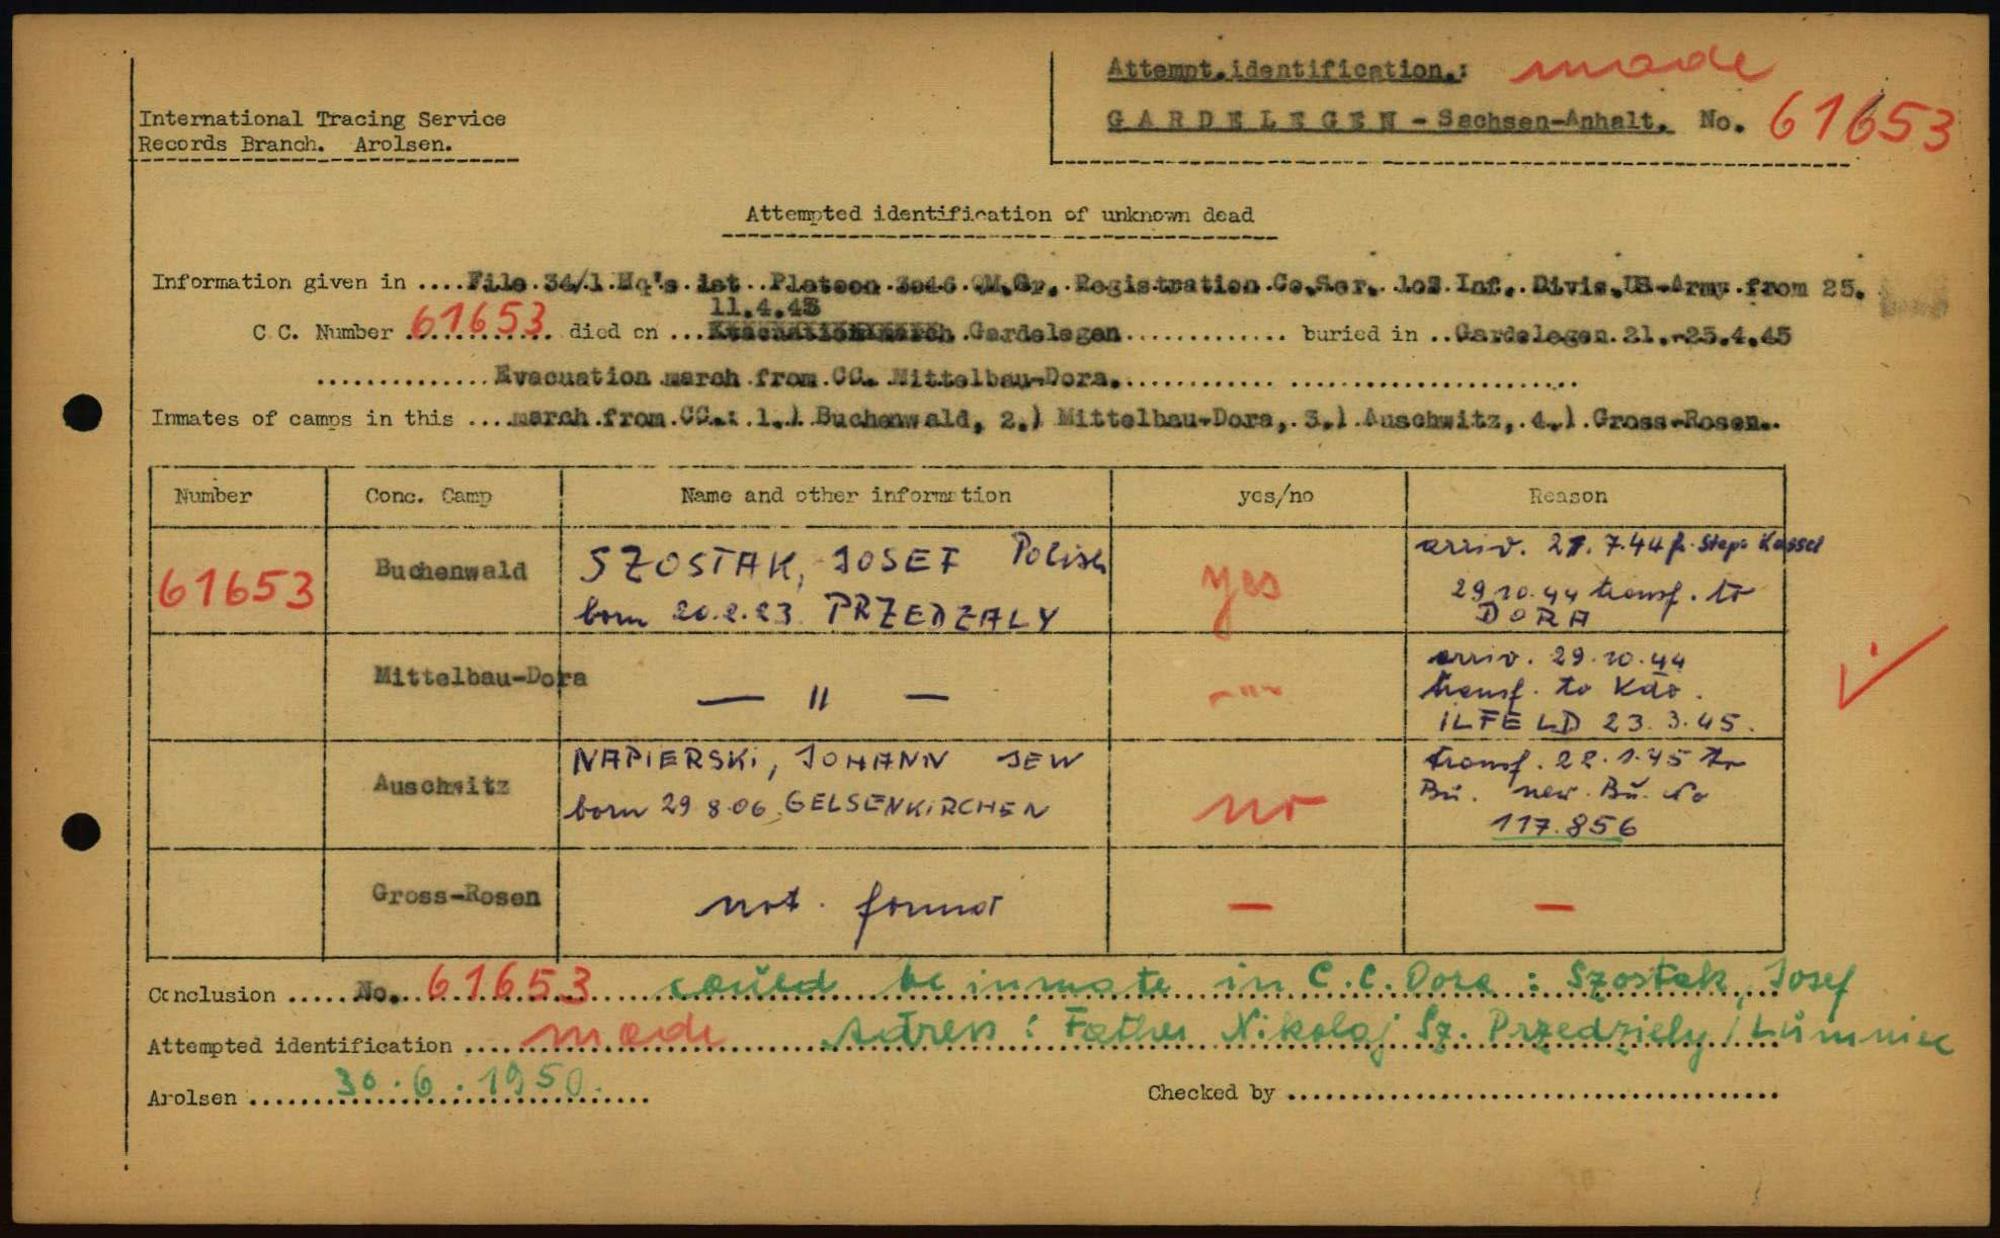 Attempt. identification.: made
International Tracing Service
Records Branch. Arolsen.
GARDELEGEN - Sachsen-Anhalt. No. 61653
Attempted identification of unknown dead
Information given in ....File 34/1 Hq's 1st Platoon 3046 QM.Gr. Registration Co.Ser. 102 Inf. Divis. US-Army from 25.
11.4.45
C.C. Number 61653 died on ... Gardelegen ............. buried in ..Gardelegen 21.-25.4.45
..............Evacuation march from CC. Mittelbau-Dora.............
Inmates of camps in this ....march from CC.: 1.) Buchenwald, 2.) Mittelbau-Dora, 3.) Auschwitz, 4.) Gross-Rosen.
Number Conc. Camp Name and other information yes/no Reason
61653 Buchenwald SZOSTAK, JOSEF Polish yes arriv. 27.7.44 fr. Stapo Kassel
born 20.2.23 PRZEDZALY 29.10.44 transf. to
DORA
Mittelbau-Dora — " — -"- arriv. 29.10.44
transf. to Kdo.
ILFELD 23.3.45.
Auschwitz NAPIERSKI, JOHANN JEW no transf. 22.1.45 to
born 29.8.06, GELSENKIRCHEN Bu. new Bu. No
117.856
Gross-Rosen not found — —
Conclusion .....No. 61653 could be inmate in C.C. Dora : Szostak, Josef
Attempted identification .... made Adress : Father Nikolaj Sz. Przedziely / Lumniec
Arolsen 30.6.1950. Checked by ......................................